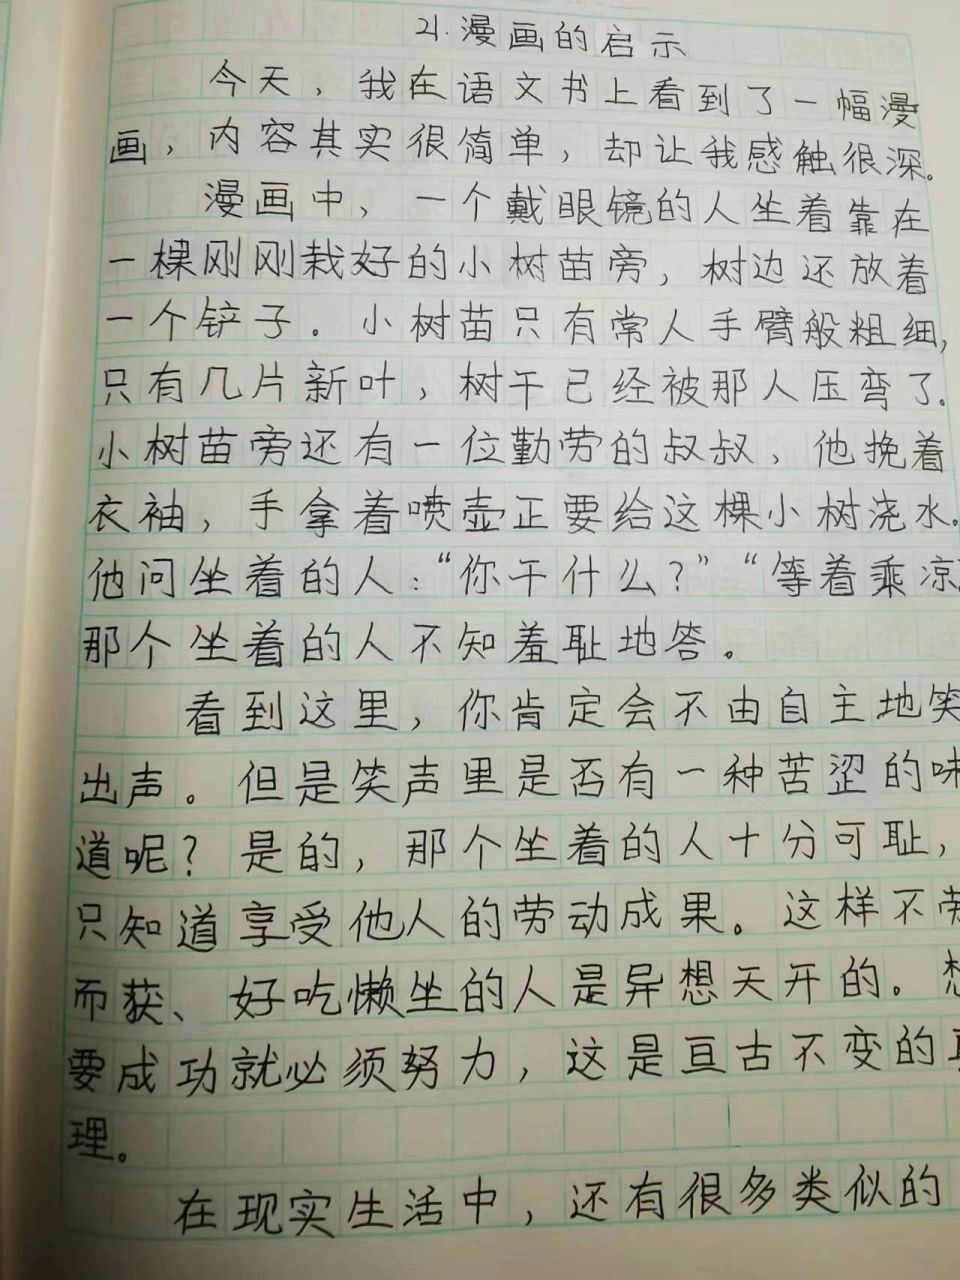 21.漫画的启示
今天，我在语文书上看到了一幅漫
画，内容其实很简单，却让我感触很深。
漫画中，一个戴眼镜的人坐着靠在
一棵刚刚栽好的小树苗旁，树边还放着
一个铲子。小树苗只有常人手臂般粗细，
只有几片新叶，树干已经被那人压弯了。
小树苗旁还有一位勤劳的叔叔，他挽着
衣袖，手拿着喷壶正要给这棵小树浇水。
他问坐着的人：“你干什么？”“等着乘凉
那个坐着的人不知羞耻地答。
看到这里，你肯定会不由自主地笑
出声。但是笑声里是否有一种苦涩的味
道呢？是的，那个坐着的人十分可耻，
只知道享受他人的劳动成果。这样不劳
而获、好吃懒坐的人是异想天开的。想
要成功就必须努力，这是亘古不变的真
理。
在现实生活中，还有很多类似的